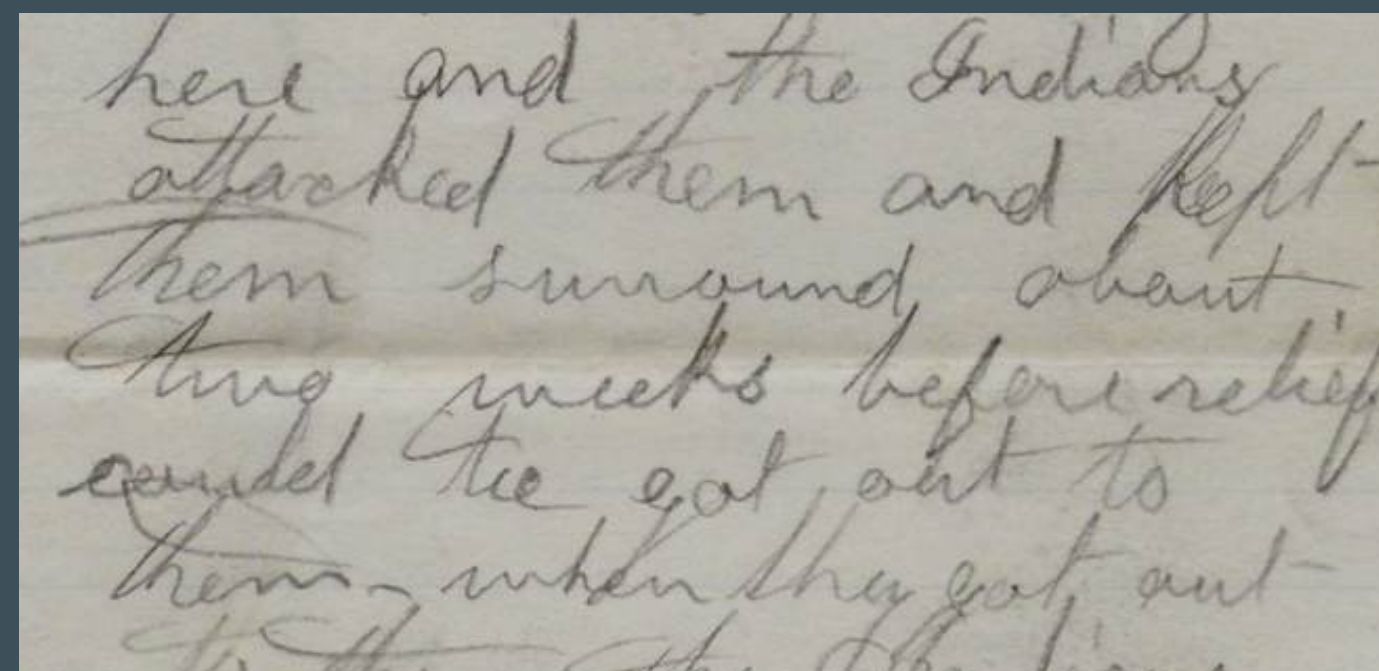 here and the Indians
attacked them and kept
them surround about
two weeks before relief
could be got out to
them - when they got out
to them the Indians